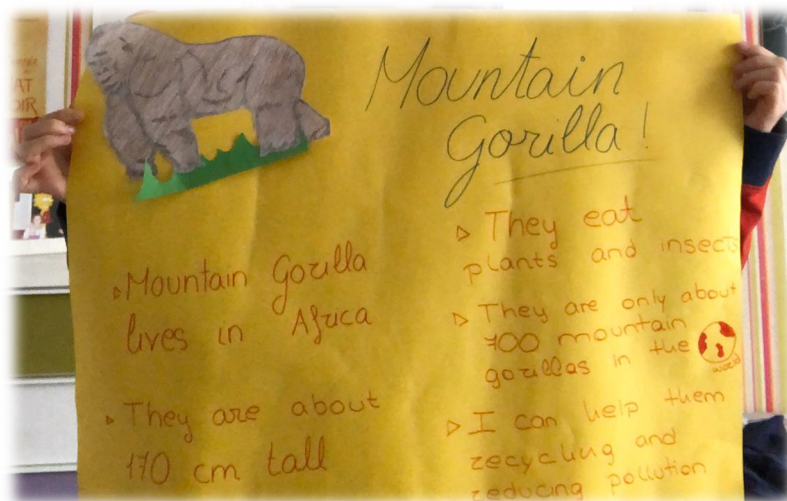 Mountain
Gorilla!
▹ Mountain Gorilla
lives in Africa
▹ They are about
170 cm tall
▹ They eat
plants and insects
▹ They are only about
700 mountain
gorillas in the
world
▹ I can help them
recycling and
reducing pollution